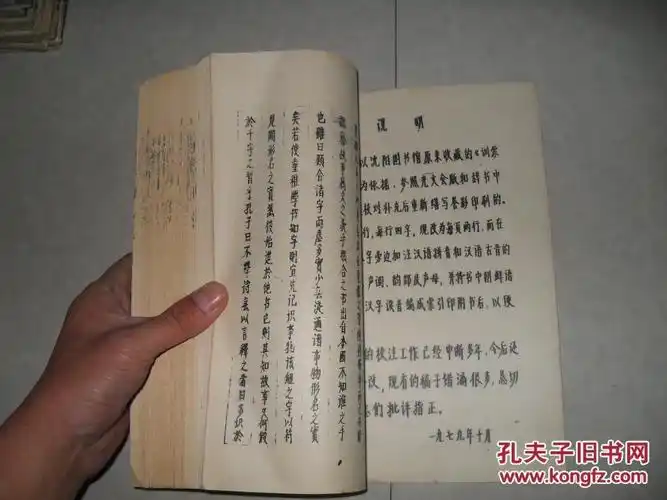 说 明
以沈阳图书馆原来收藏的《训蒙
为依据,参照光文会版和辞书中
校对补充后重新缮写誊影印刷的。
行,每行四字,现改为每页两行,而在
字旁边加注汉语拼音和汉语古音的
声调、韵部及声母,并将书中朝鲜语
汉字读音编成索引印附书后,以便
的校注工作已经中断多年,今后还
改,现有的稿子错漏很多,恳切
志们批评指正。
一九七九年十月
之条子類合之书出自本國不知誰之手
也雖曰類合諸字而虛多實少無從通諳事物形名之實
矣若使童稚學书知字則宜先记识事物該紐之字以符
見聞形名之實然後始進於他书也則其知故事又何假
於千字之習乎孔子曰不學诗無以言釋之者曰多识於
孔夫子旧书网
www.kongfz.com